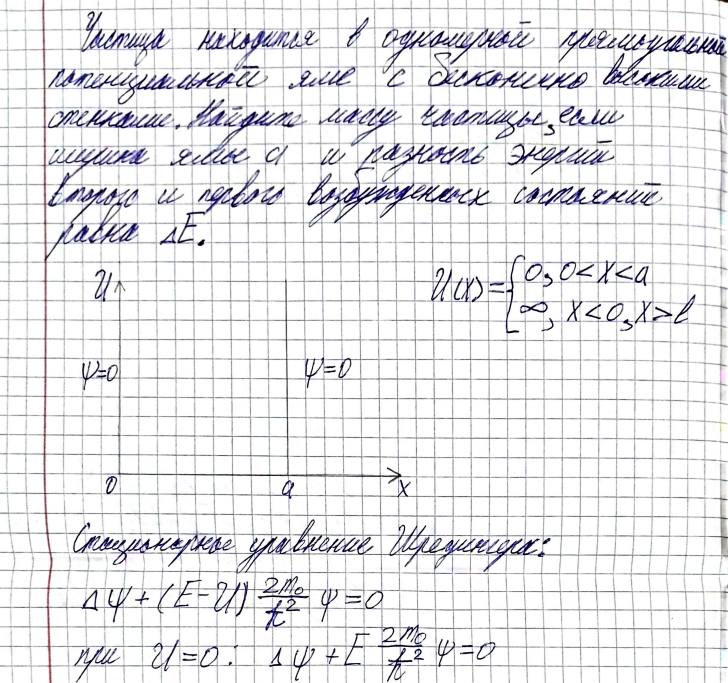 Частица находится в одномерной прямоугольной
потенциальной яме с бесконечно высокими
стенками. Найдите массу частицы, если
ширина ямы a и разность энергий
второго и первого возбужденных состояний
равна ΔE.
U
U(x) = { 0, 0<x<a
∞, x<0, x>l
ψ=0 ψ=0
0 a x
Стационарное уравнение Шредингера:
Δψ + (E-U) 2m₀/ħ² ψ = 0
при U=0: Δψ + E 2m₀/ħ² ψ = 0